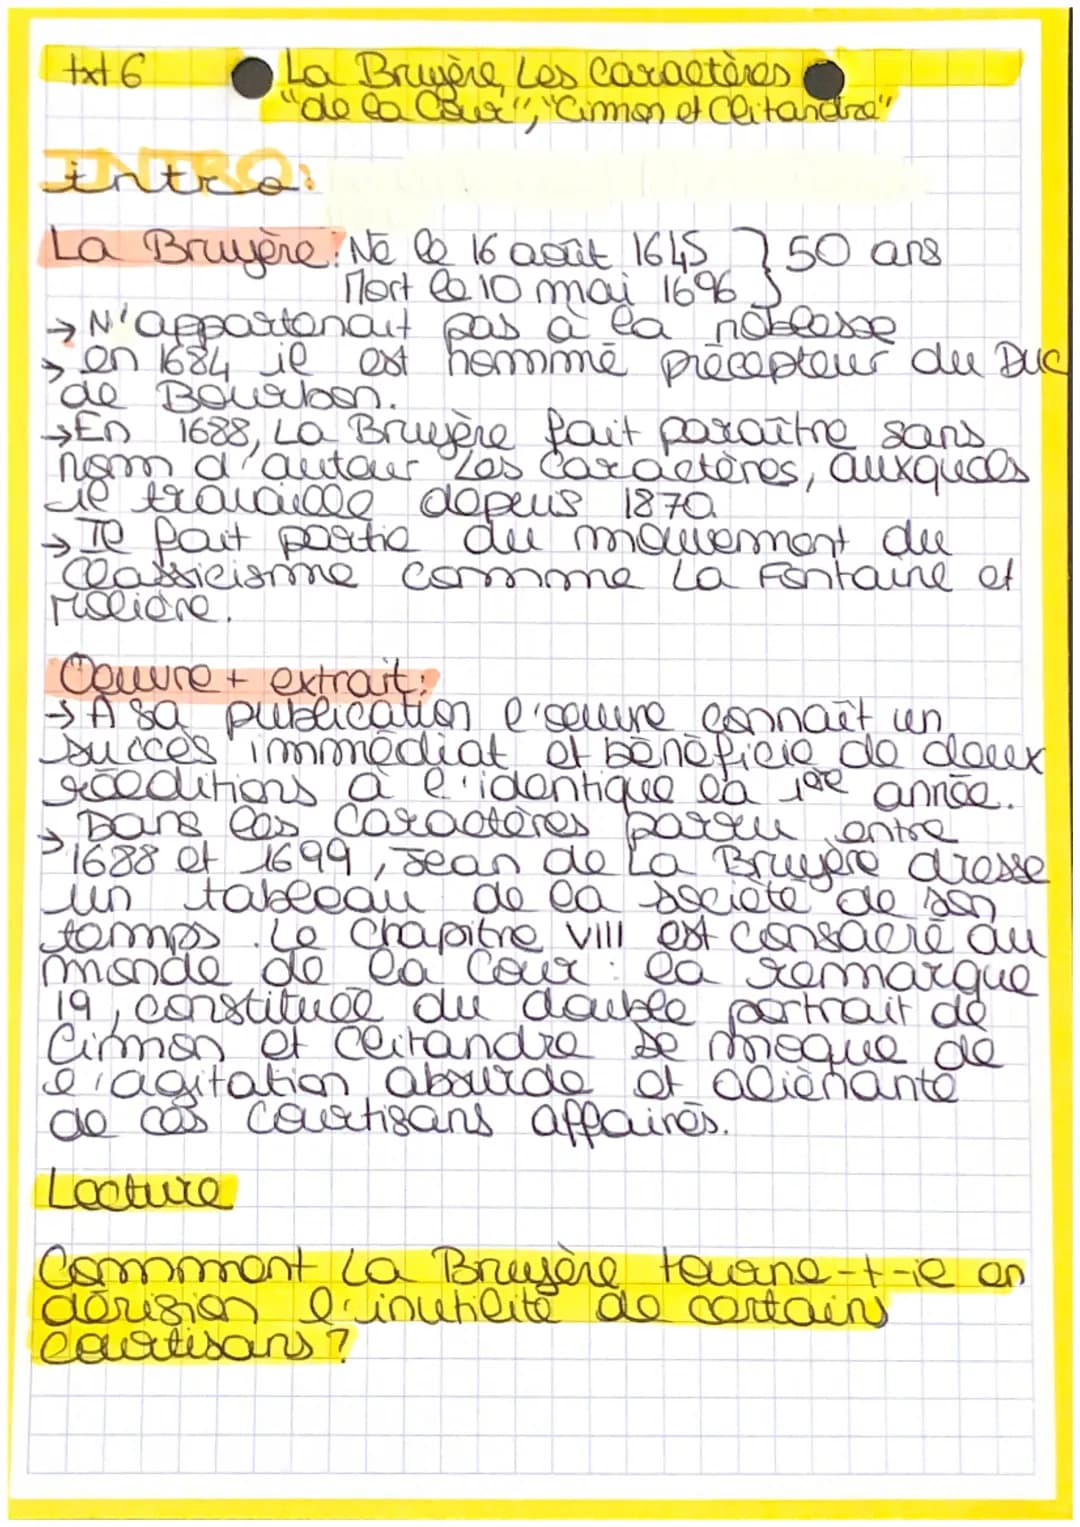 txt 6
La Bruyère, Les Caractères
"de la Cour", "Cimon et Clitandre"
INTRO:
intro:
La Bruyère: Né le 16 août 1645 } 50 ans
Mort le 10 mai 1696
→ N'appartenait pas à la noblesse
→ en 1684 il est nommé précepteur du Duc
de Bourbon.
→ En 1688, La Bruyère fait paraître sans
nom d'auteur Les Caractères, auxquels
il travaille depuis 1870
→ Il fait partie du mouvement du
Classicisme comme La Fontaine et
Molière.
Oeuvre + extrait:
→ A sa publication l'oeuvre connaît un
succès immédiat et bénéficie de deux
rééditions à l'identique la 1ère année.
→ Dans les Caractères parru entre
1688 et 1699, Jean de La Bruyère dresse
un tableau de la société de son
temps. Le Chapitre VIII est consacré au
monde de la Cour: la remarque
19, constituée du double portrait de
Cimmon et Clitandre se moque de
l'agitation absurde et aliénante
de ces courtisans affairés.
Lecture
Commment La Bruyère tourne-t-il en
dérision l'inutilité de certains
courtisans?